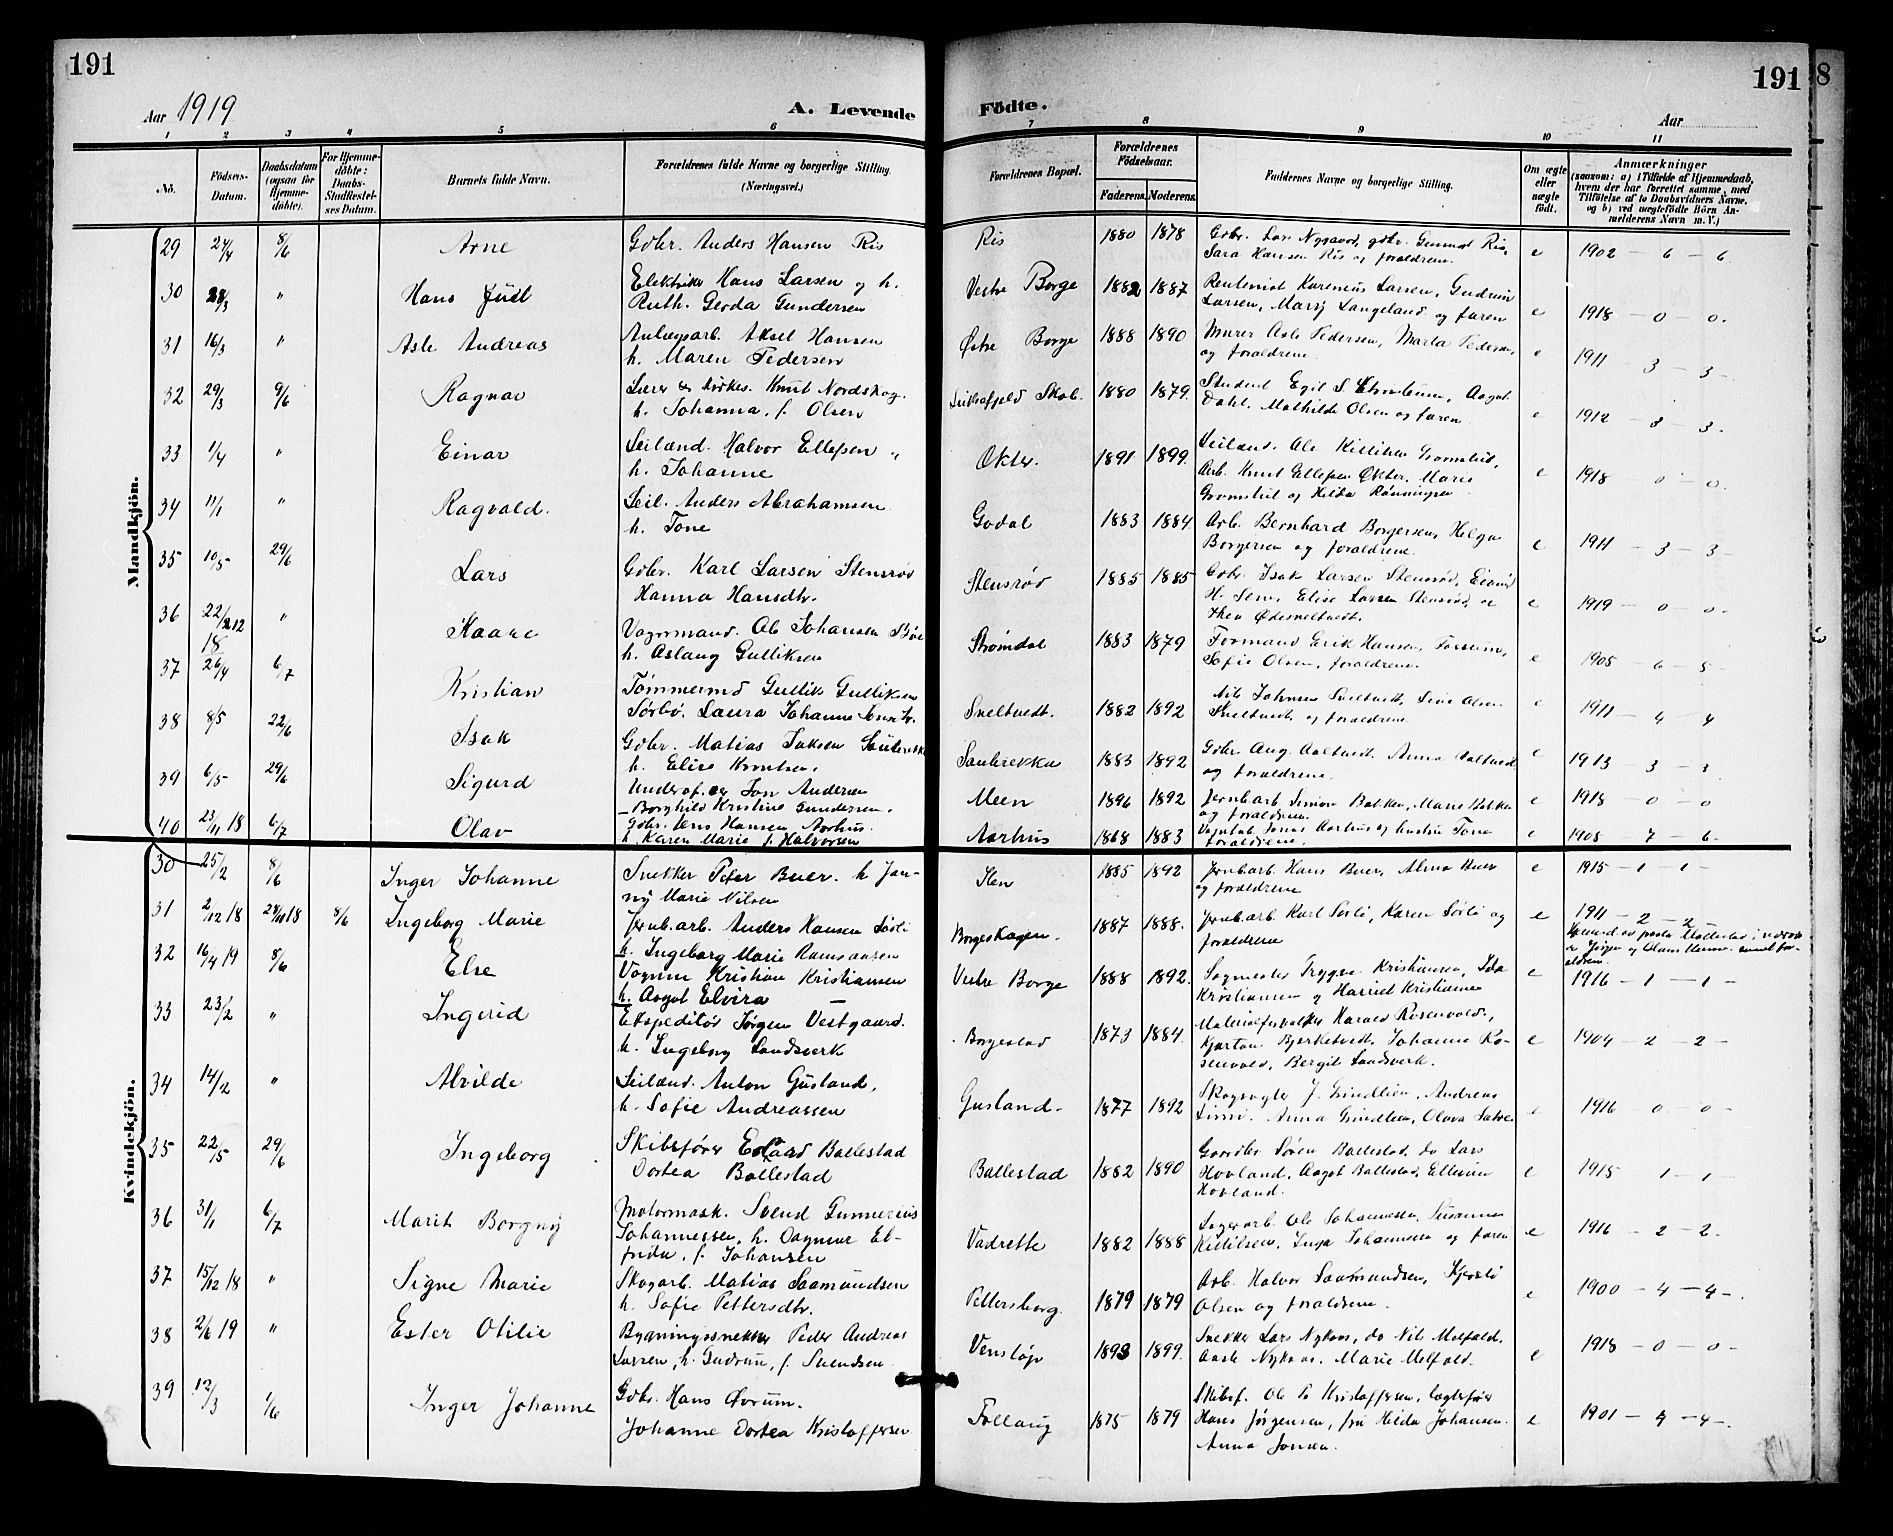 191
191
8
Aar 1919
A. Levende
Födte.
Aar
1 2 3 4 5 6 7 8 9 10 11
No.
Födsels-
Datum.
Daabsdatum
(ogsaa for
Hjemme-
döbte).
For Hjemme-
döbte:
Daabs-
Stadfæstel-
ses Datum.
Barnets fulde Navn.
Forældrenes fulde Navne og borgerlige Stilling.
(Næringsvei.)
Forældrenes Bopæl.
Forældrenes
Födselsaar.
Faderens.
Moderens.
Faddernes Navne og borgerlige Stilling.
Om ægte
eller
uægte
födt.
Anmærkninger
(saasom: a) i Tilfælde af Hjemmedaab,
hvem der har forrettet samme, med
Tilföielse af to Daabsvidners Navne,
og b) ved uægtefödte Börn An-
melderens Navn m. V.)
Mandkjön.
29 24/4 8/6 Arne Gbr. Anders Hansen Ris Ris 1880 1878 Gbr. Lars Nysaød, gbr. Gunnar Ris, e 1902 - 6 - 6
Sara Hansen Ris og forældrene.
30 28/3 " Hans Juell Elektriker Hans Larsen og h. Vestre Borge 1882 1887 Rentenist Karenius Larsen, Gudrun
Ruth Gerda Gundersen Larsen, Marij Langeland og faren e 1918 - 0 - 0.
31 16/3 " Asle Andreas Anlægsarb. Aksel Hansen Østre Borge 1888 1890 Murer Asle Pedersen, Marta Pedersen,
h. Maren Pedersen og forældrene. e 1911 3 - 3 -
32 29/3 9/6 Ragnar Lærer & kirkes. Knut Nordskog. Skole. 1880 1879. Student Egil S., Aagot
h. Johanna, f. Olsen Dahl, Mathilde Olsen og faren e 1912 - 3 - 3.
33 1/4 " Einar Leilænd. Halvor Ellefsen " Økter. 1891 1899. Leilænd. Ole Kittilsen Gromstul,
h. Johanne Arb. Knut Ellefsen Økter, Maria e 1918 - 0 - 0.
Gromstul og Hilda Rønningen
34 11/1 " Ragvald. Leil. Anders Abrahamsen Godal 1883 1884 Arb. Bernhard Borgersen, Helga
h. Tone Borgersen og forældrene. e 1911 - 3 - 3 -
35 10/5 29/6 Lars Gbr. Karl Larsen Stensrød Stensrød 1885 1885 Gbr. Isak Larsen Stensrød,
Hanna Hansdtr. Elise Larsen Stensrød, og e 1919 - 0 - 0.
36 22/12 18 " Kaare Vognmand. Ole Johansen Bøe Strømdal 1883 1879 Formand Erik Hansen, Fossum,
h. Aslaug Gulliksen Sofie Olsen, forældrene. e 1905 - 6 - 5
37 26/4 6/7 Kristian Tømmermd Gullik Gulliksen Sneltvedt. 1882 1892 Nils Johnsen Sneltvedt, Olsen e 1911 - 4 - 4
Sørbø, Laura Johanne Sneltvedt og forældrene.
38 8/5 22/6 Isak Gbr. Matias Isaksen Saubrekka 1883 1892 Gbr. Aug. Aaltvedt, Anna Aaltvedt e 1913 - 3 - 3
h. Elise Knutsen. og forældrene.
39 6/5 29/6 Sigurd Underof. Jon Andersen Meen 1896 1892 Jernbarb Simon Bakken, Marie Bakken e 1918 - 0 - 0
- Borghild Kristine Gundersen. og forældrene.
40 23/11 18 6/7 Olav Gbr. Jens Hansen Aarhus. Aarhus 1868 1883 Jonas Aarhus og hustru Tone e 1908 - 7 - 6 -
h. Karen Marie f. Halvorsen forældrene.
Kvindekjön.
30 25/2 8/6 Inger Johanne Snekker Peter Buer. h Jen- 1885 1892 Jernbarb. Hans Buer, Alma Buer e 1915 - 1 - 1 -
ny Marie Nilsen og forældrene
31 2/12 18 8/6 Ingeborg Marie Jernb.arb. Anders Hansen Sørli Borgeskogen. 1887 1888. Jernb.arb Karl Sørli, Karen Sørli og e 1911 - 2 - 2 -
h. Ingeborg Marie Rasmussen forældrene
32 16/4 19 8/6 Else Vognm Kristian Kristiansen Vestre Borge 1888 1892. Sagmester Trygve Kristiansen, Ida e 1916 - 1 - 1 -
h. Aagot Elvira - Kristiansen og Harriet Kristiansen
33 23/2 " Ingerid Ekspeditør Jørgen Vestgaard. Borgestad 1873 1884. Materialforvalter Harald Rosenvold,
h. Ingeborg Landsverk Kjartan Bjerketvedt, Johanne Ro- e 1904 - 2 - 2 -
senvold, Bergit Landsverk.
34 14/2 " Alvilde Leilænd. Anton Gusland, Gusland. 1877 1892 Skogvogter J. Grindlien, Andreas
h. Sofie Andreassen Anna Grindlien, Olava e 1916 - 0 - 0 -
35 22/5 29/6 Ingeborg Skibsfører Ballestad Ballestad 1882 1890 Gaardbr Søren Ballestad, do Lars
Dortea Ballestad Hovland, Aagot Ballestad, Hovland. e 1915 1 - 1 -
36 31/1 6/7 Marit Borgny Motormask. Svend Gunnerius Vadrette 1882 1888 Lagerarb Ole Johannesen, Susanna
Johannessen, h. Dagmar El- Kittilsen, Inga Johannesen og faren e 1916 - 2 - 2.
frida, f. Johansen
37 15/12 18 " Signe Marie Skogarb. Matias Saamundsen Pettersborg. 1879 1879 Arb. Halvor Saamundsen, Kjersti
h. Sofie Pettersdtr. Olsen og forældrene. e 1900 - 4 - 4 -.
38 2/6 19 " Ester Otilie Bygningssnekker Peder Andreas Venstøp 1893 1899. Snekker Lars Nykaas, do Nils Melfald,
Larsen, h. Gudrun, f. Svendsen Aaste Nykaas, Marie Melfald. e 1918 - 0 - 0 -
39 12/3 1/6 Inger Johanne Gbr. Hans Øvrum. Follaug 1875 1879 Skibsf. Ole P. Kristoffersen, lægtefører
Johanne Dortea Kristoffersen Hans Jørgensen, fru Hilda Johansen e 1901 - 4 - 4 -.
Anna Jonsen.